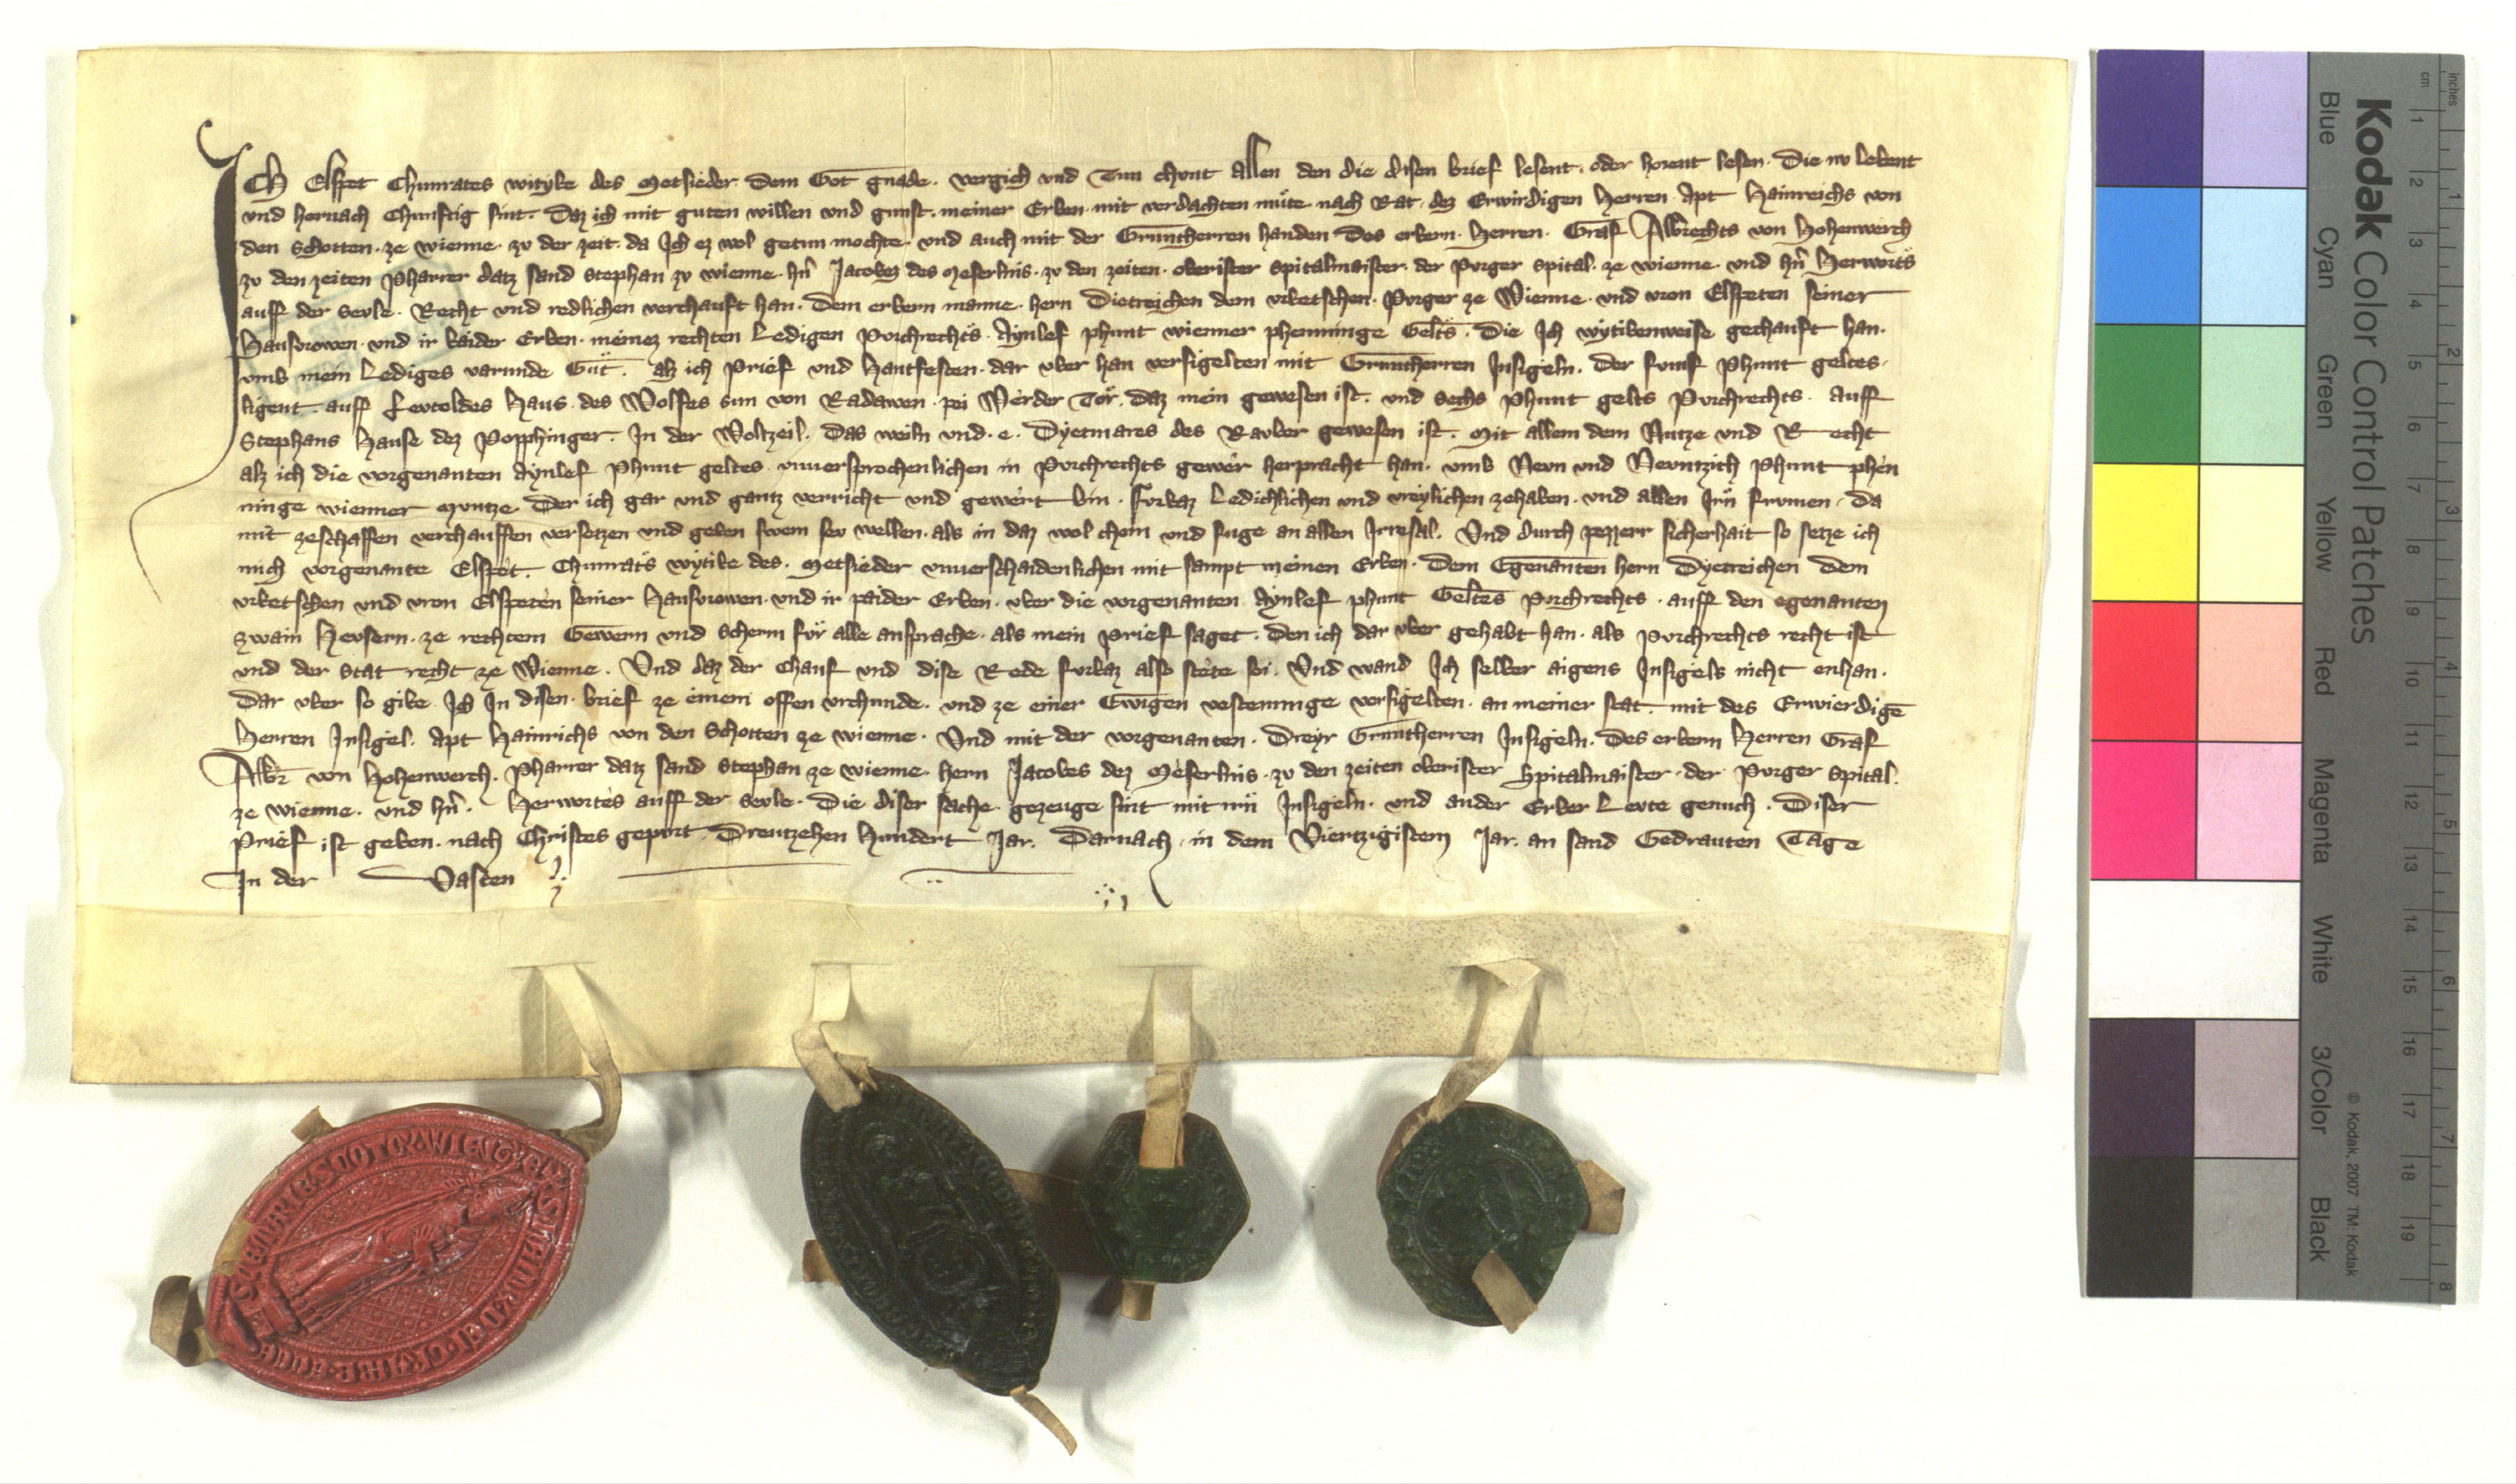 ICH Elspet Chunrates witybe des Metsieder dem Got gnade. vergich vnd Tun chunt allen den die disen brief lesent. oder horent lesen. Die nv lebent
vnd hernach Chunftig sint. Daz ich mit guten willen vnd gunst. meiner Erben. mit verdachten můte nach Rat. dez Erwirdigen Herren. Apt Hainreichs von
den Schotten. ze wienne. zv der zeit. da Ich ez wol getun mochte. vnd auch mit der Gruntherren handen des erbern. Herren. Graf Albrechts von Hohenwerch
zv den zeiten Pharrer datz sand Stephan zv wienne. hn̄ Jacobez des Meserlins. zv den zeiten. oberister Spitalmaister. der Purger spital. ze wienne. vnd hn̄ Herworts
auff der Sevle. Recht vnd redlichen verchauft han. Dem erbern manne. hern Dietreichen dem vrbetschen. Purger ze Wienne. vnd vron Elspeten seiner
Hausvrowen. vnd ir baider Erben. meinez rechten Ledigen Purchrechts. Aynlef phunt wienner phenninge Gelts. Die Ich wytibenweise gechauft han.
vmb mein Lediges varunde Gůt. alz ich Prief vnd Hantfesten. dar vber han versigelten mit Gruntherren Insigeln. Der funf Phunt geltes.
ligent. auff Levtoldes Haus. des Wolfes sun von Radawen. pei Werder Tor. daz mein gewesen ist. vnd Sechs Phunt gelts Purchrechts. auff
Stephans Hause dez Popphinger. In der Woltzeil. Das weiln vnd. e. Dyetmares des Rauber gewesen ist. Mit allem dem Nutze vnd Recht
alz ich die vorgenanten Aynlef Phunt geltes vnuersprochenlichen in Purchrechts gewer herpracht han. vmb Nevn vnd Nevntzich Phunt phen
ninge wienner Mvntze. Der ich gar vnd gantz verricht vnd gewert bin. Furbaz Ledichlichen vnd vreylichen zehaben. vnd allen Irn̄ frumen. Da
mit zeschaffen verchauffen versetzen vnd geben swem sev wellen. als in daz wol chom vnd fuge an allen Irresal. Vnd durch pezzerr sicherhait so setze ich
mich vorgenante Elspet. Chunrats wytibe des. Metsieder vnuerschaidenlichen mit sampt meinen Erben. Dem Egenanten hern Dyetreichen dem
vrbetschen vnd vron Elspeten seiner Hausvrowen. vnd ir paider Erben. vber die vorgenanten Aynlef phunt Geltes Purchrechts. auff den egenanten
zwain Hevsern. ze rechtem Gewern vnd scherm fur alle ansprache. als mein Prief saget. den ich dar vber gehabt han. als Purchrechts recht ist
vnd der Stat recht ze Wienne. Vnd daz der Chauf vnd dise Rede furbaz also stete sei. Vnd wand Ich selber aigens Insigels nicht enhan.
Dar vber so gibe Ich In disen. brief ze einem offen vrchunde. vnd ze einer Ewigen vestenunge versigelten. an meiner stat. mit des Erwierdigē
Herren Insigel. Apt Hainrichs von den Schotten ze wienne. Vnd mit der vorgenanten. Dreyr Gruntherren Insigeln. Des erbern Herren Graf
Albr̄ von Hohenwerch. Pharrer datz sand Stephan ze wienne. hern Jacobes dez Meserlins. zv den zeiten oberister Spitalmaister. der Purger spital.
ze wienne. vnd hn̄. Herwortes auff der Sevle. Die diser sache gezeuge sint mit irn̄ Insigeln. vnd ander Erber Levte genuch. Diser
Prief ist geben. nach Christes gepurt Dreutzehen Hundert Jar. Darnach. in dem Viertzigistem Jar. an sand Gedrauten Tage
In der Vasten
Kodak Color Control Patches
Blue Cyan Green Yellow Red Magenta White 3/Color Black
© Kodak, 2007 TM: Kodak
cm 1 2 3 4 5 6 7 8 9 10 11 12 13 14 15 16 17 18 19
inches 1 2 3 4 5 6 7 8